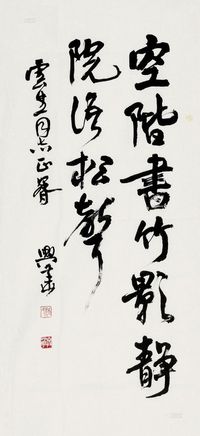 空階書竹影靜
院落松聲
雲生同志正腕
興義